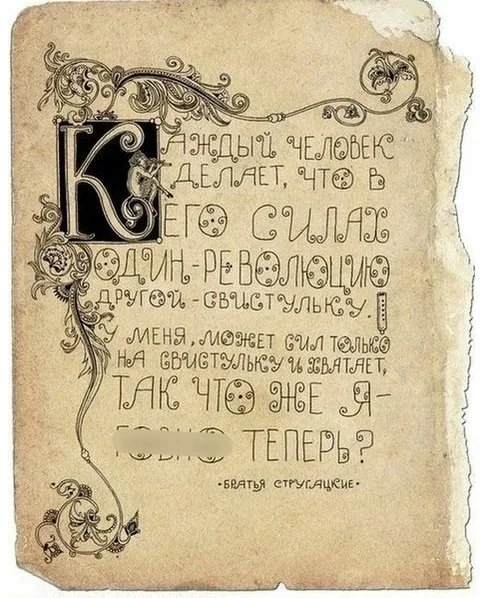 Каждый человек
делает, что в
его силах
один - революцию
другой - свистульку.
У меня, может сил только
на свистульку и хватает,
так что же я -
говно теперь?
• Братья Стругацкие •